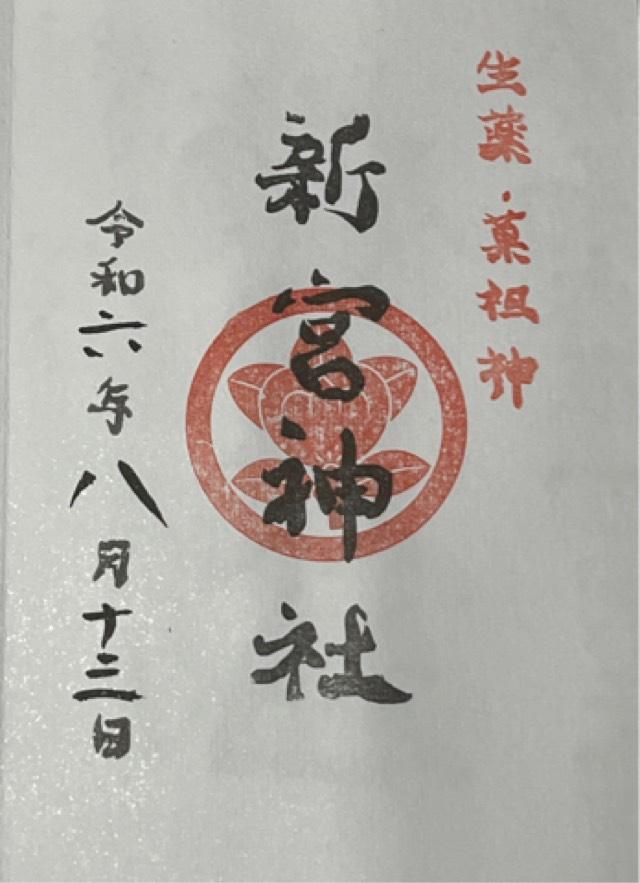 生薬・菓祖神
新宮神社
令和六年八月十三日